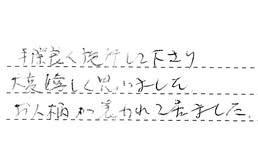 手際良く施行して下さり
大変嬉しく思いました。
お人柄が表われて居ました。